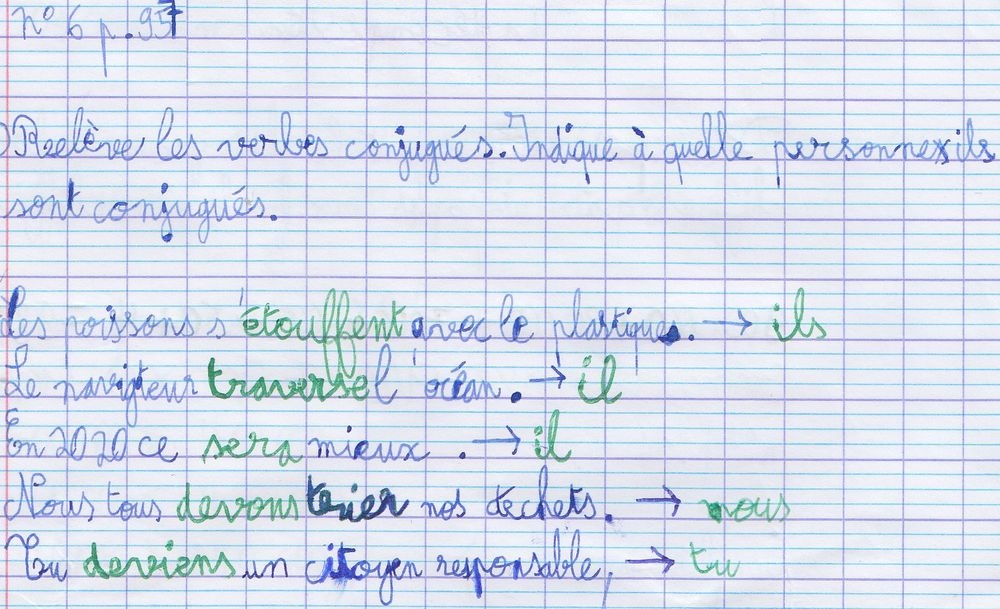 n° 6 p. 957
Relève les verbes conjugués. Indique à quelle personnes ils
sont conjugués.
Les poissons s'étouffent avec le plastique. → ils
Le navigteur traverse l'océan. → il
En 2020 ce sera mieux. → il
Nous tous devons trier nos déchets. → nous
Tu deviens un citoyen responsable, → tu